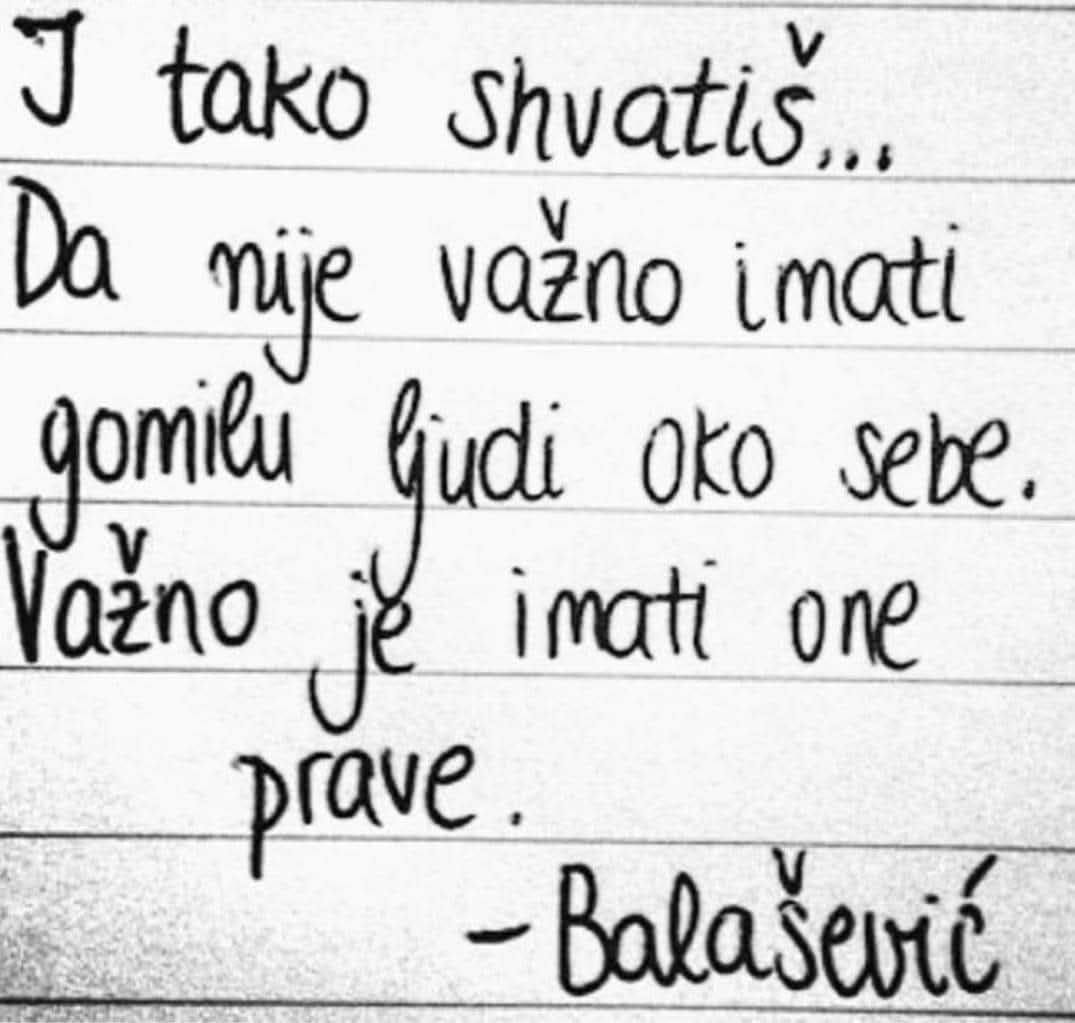 I tako shvatiš...
Da nije važno imati
gomilu ljudi oko sebe.
Važno je imati one
prave.
- Balašević